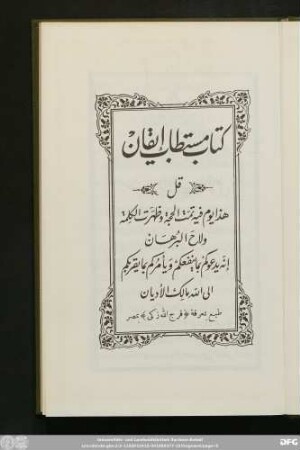 كتاب مستطاب ايقان
قل
هذا يوم فيه تمت الحجة وظهرت الكلمة
ولاح البرهان
إنه يدعوكم بما ينفعكم ويأمركم بما يقربكم
الى الله مالك الأديان
طبع بمعرفة فرج الله زكى بمصر
Universitäts- und Landesbibliothek Sachsen-Anhalt
DFG